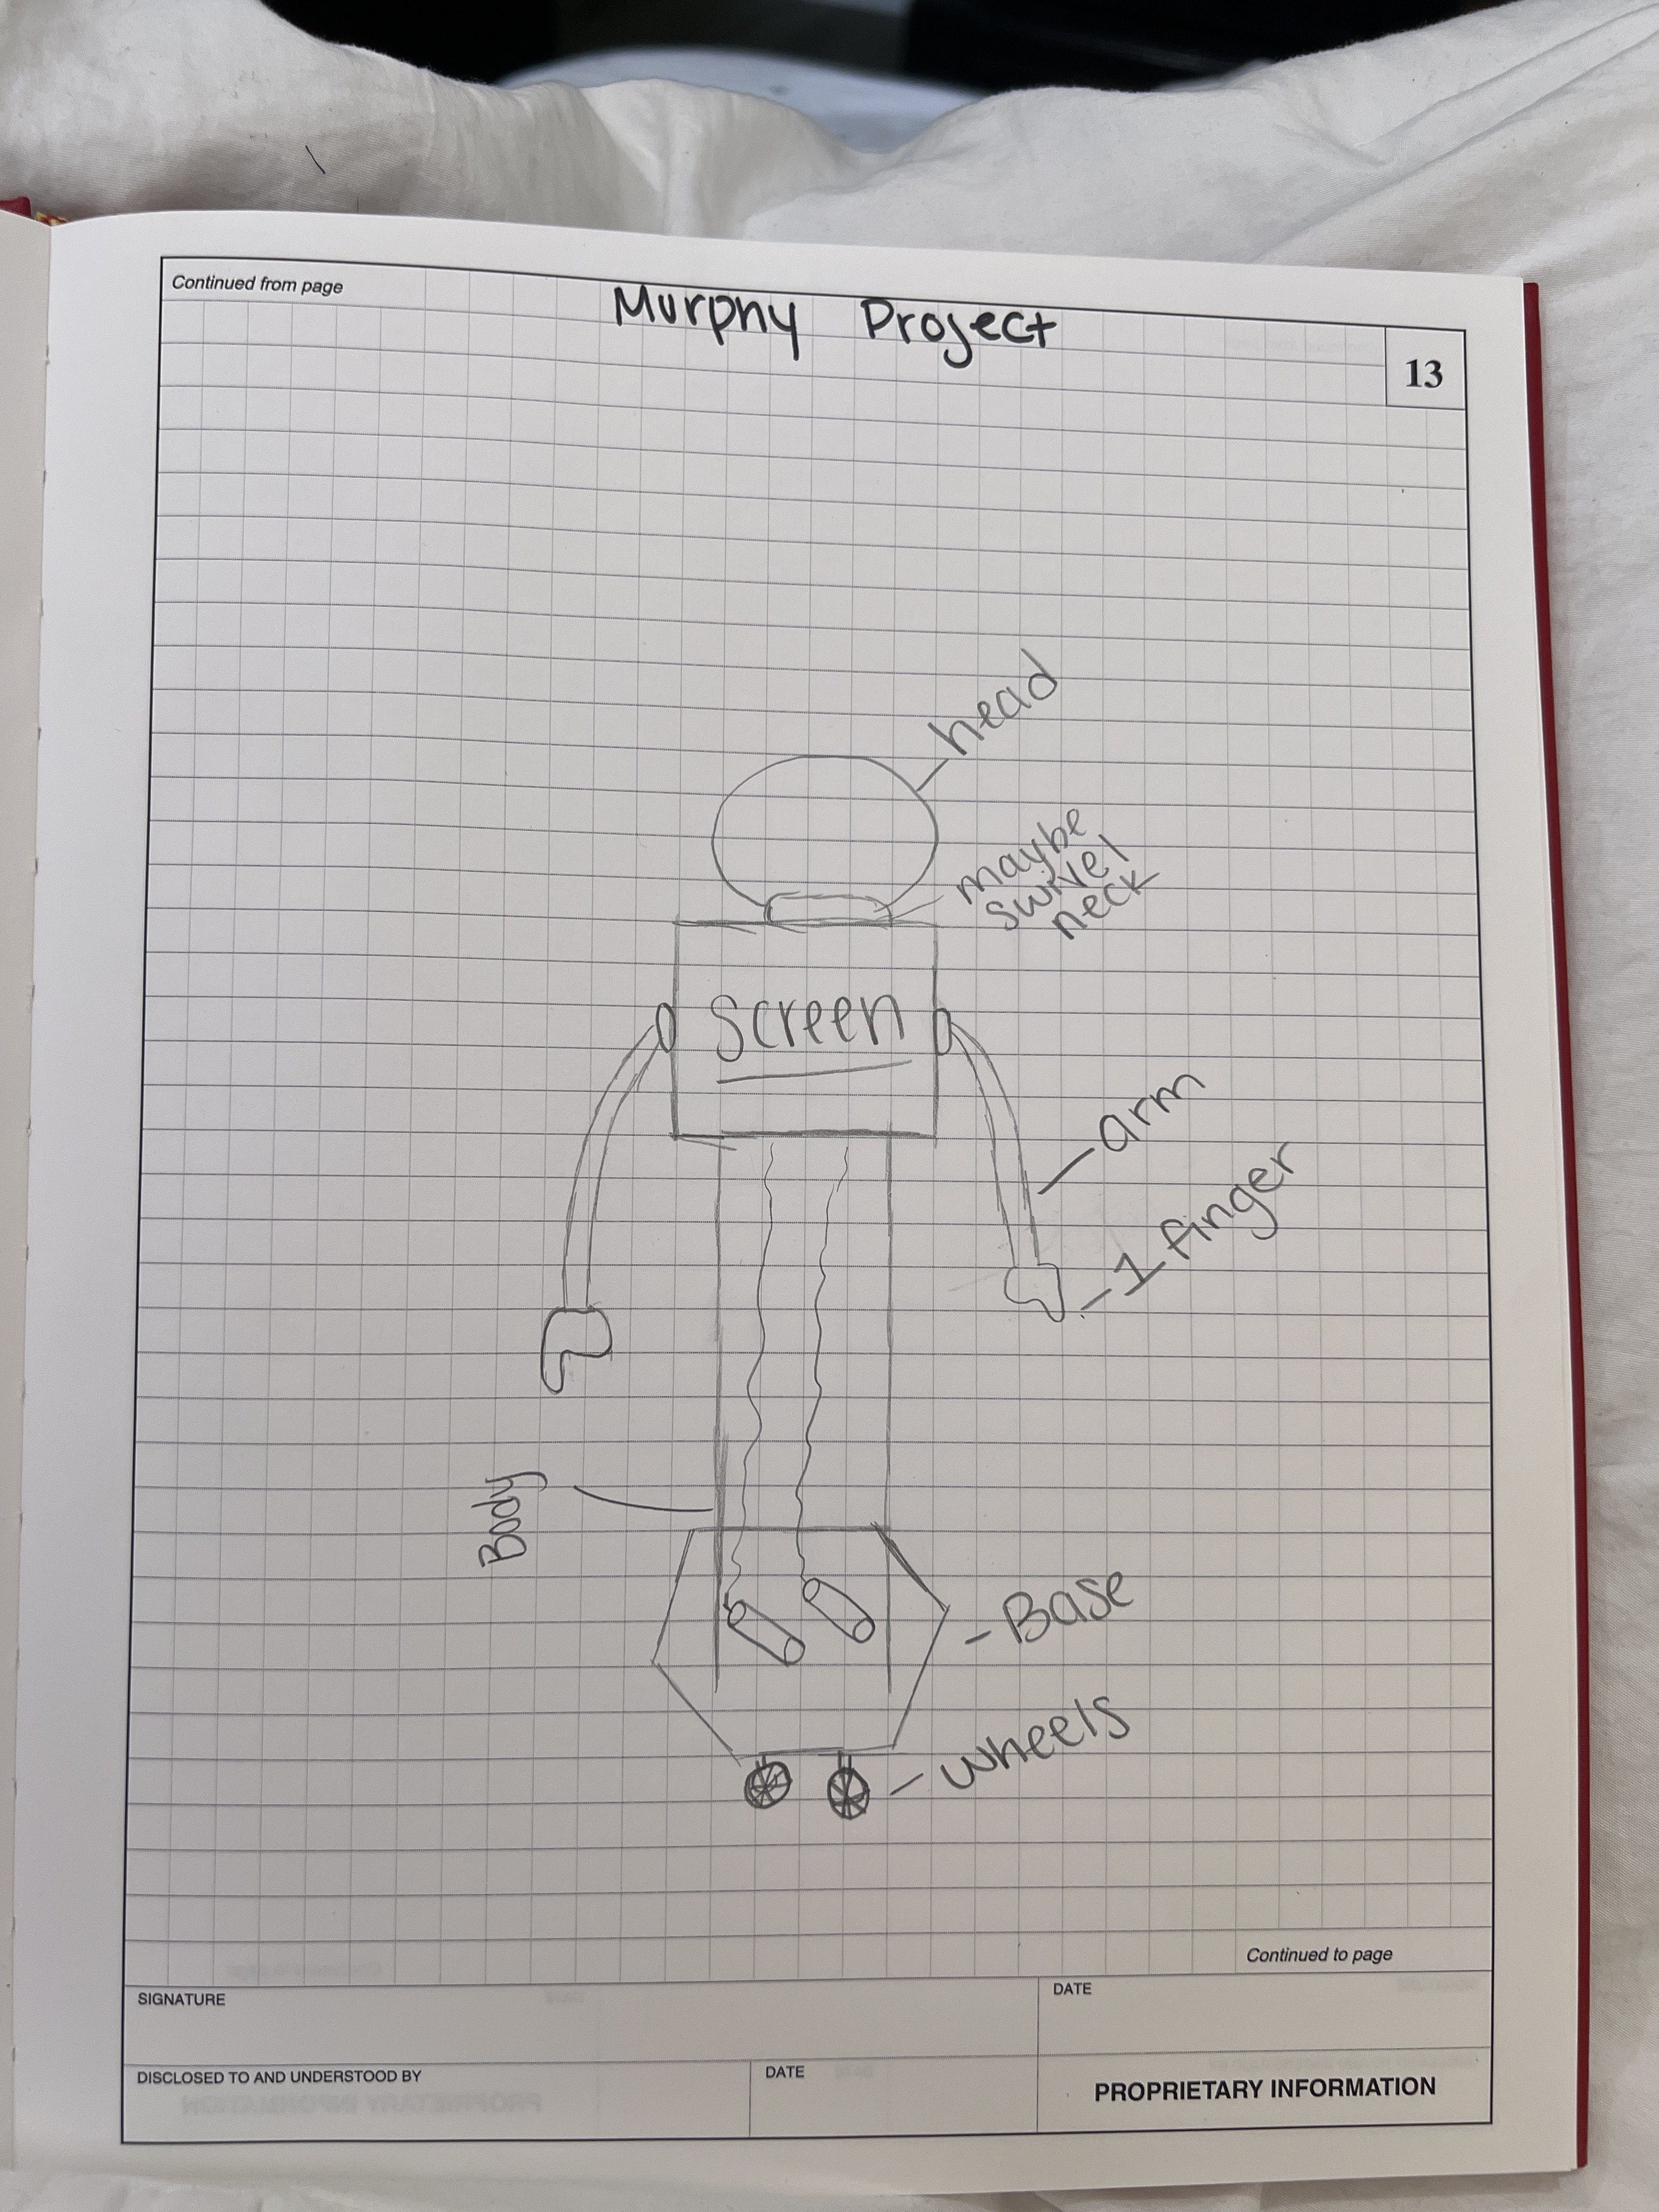 Continued from page
Murphy Project
13
head
maybe
swivel
neck
screen
arm
1 finger
Body
Base
wheels
Continued to page
SIGNATURE
DATE
DISCLOSED TO AND UNDERSTOOD BY
DATE
PROPRIETARY INFORMATION